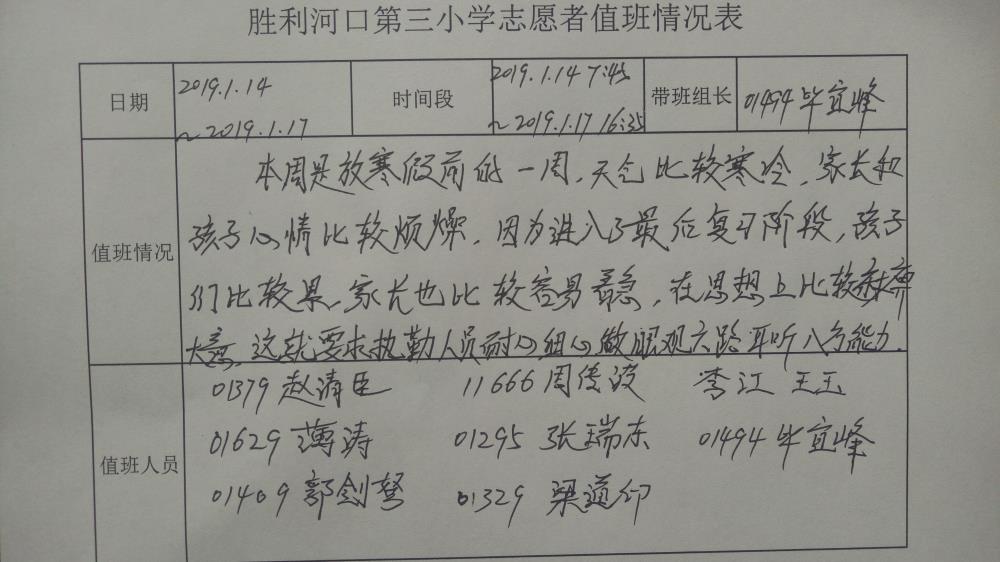 胜利河口第三小学志愿者值班情况表
日期 2019.1.14 ~2019.1.17 时间段 2019.1.14 7:45 ~2019.1.17 16:35 带班组长 01494 毕宜峰
值班情况
本周是放寒假前的一周,天气比较寒冷,家长和
孩子心情比较烦燥,因为进入了最后复习阶段,孩子
们比较累,家长也比较容易着急,在思想上比较麻痹
大意,这就要求执勤人员耐心,细心,做眼观六路耳听八方能力.
值班人员
01379 赵清臣 11666 周传波 李江 王玉
01629 薄涛 01295 张瑞东 01494 毕宜峰
01409 郭剑 01329 梁道仰